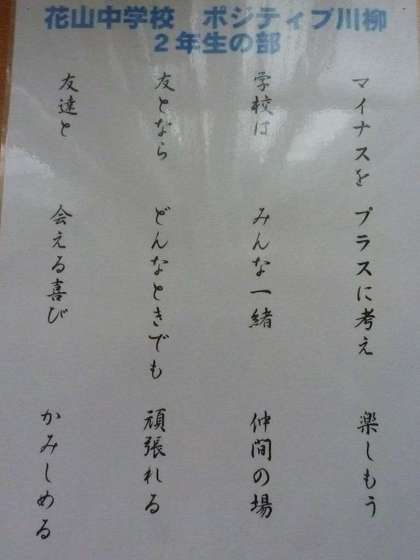 花山中学校　ポジティブ川柳
２年生の部
マイナスを　プラスに考え　楽しもう
学校は　みんな一緒　仲間の場
友となら　どんなときでも　頑張れる
友達と　会える喜び　かみしめる